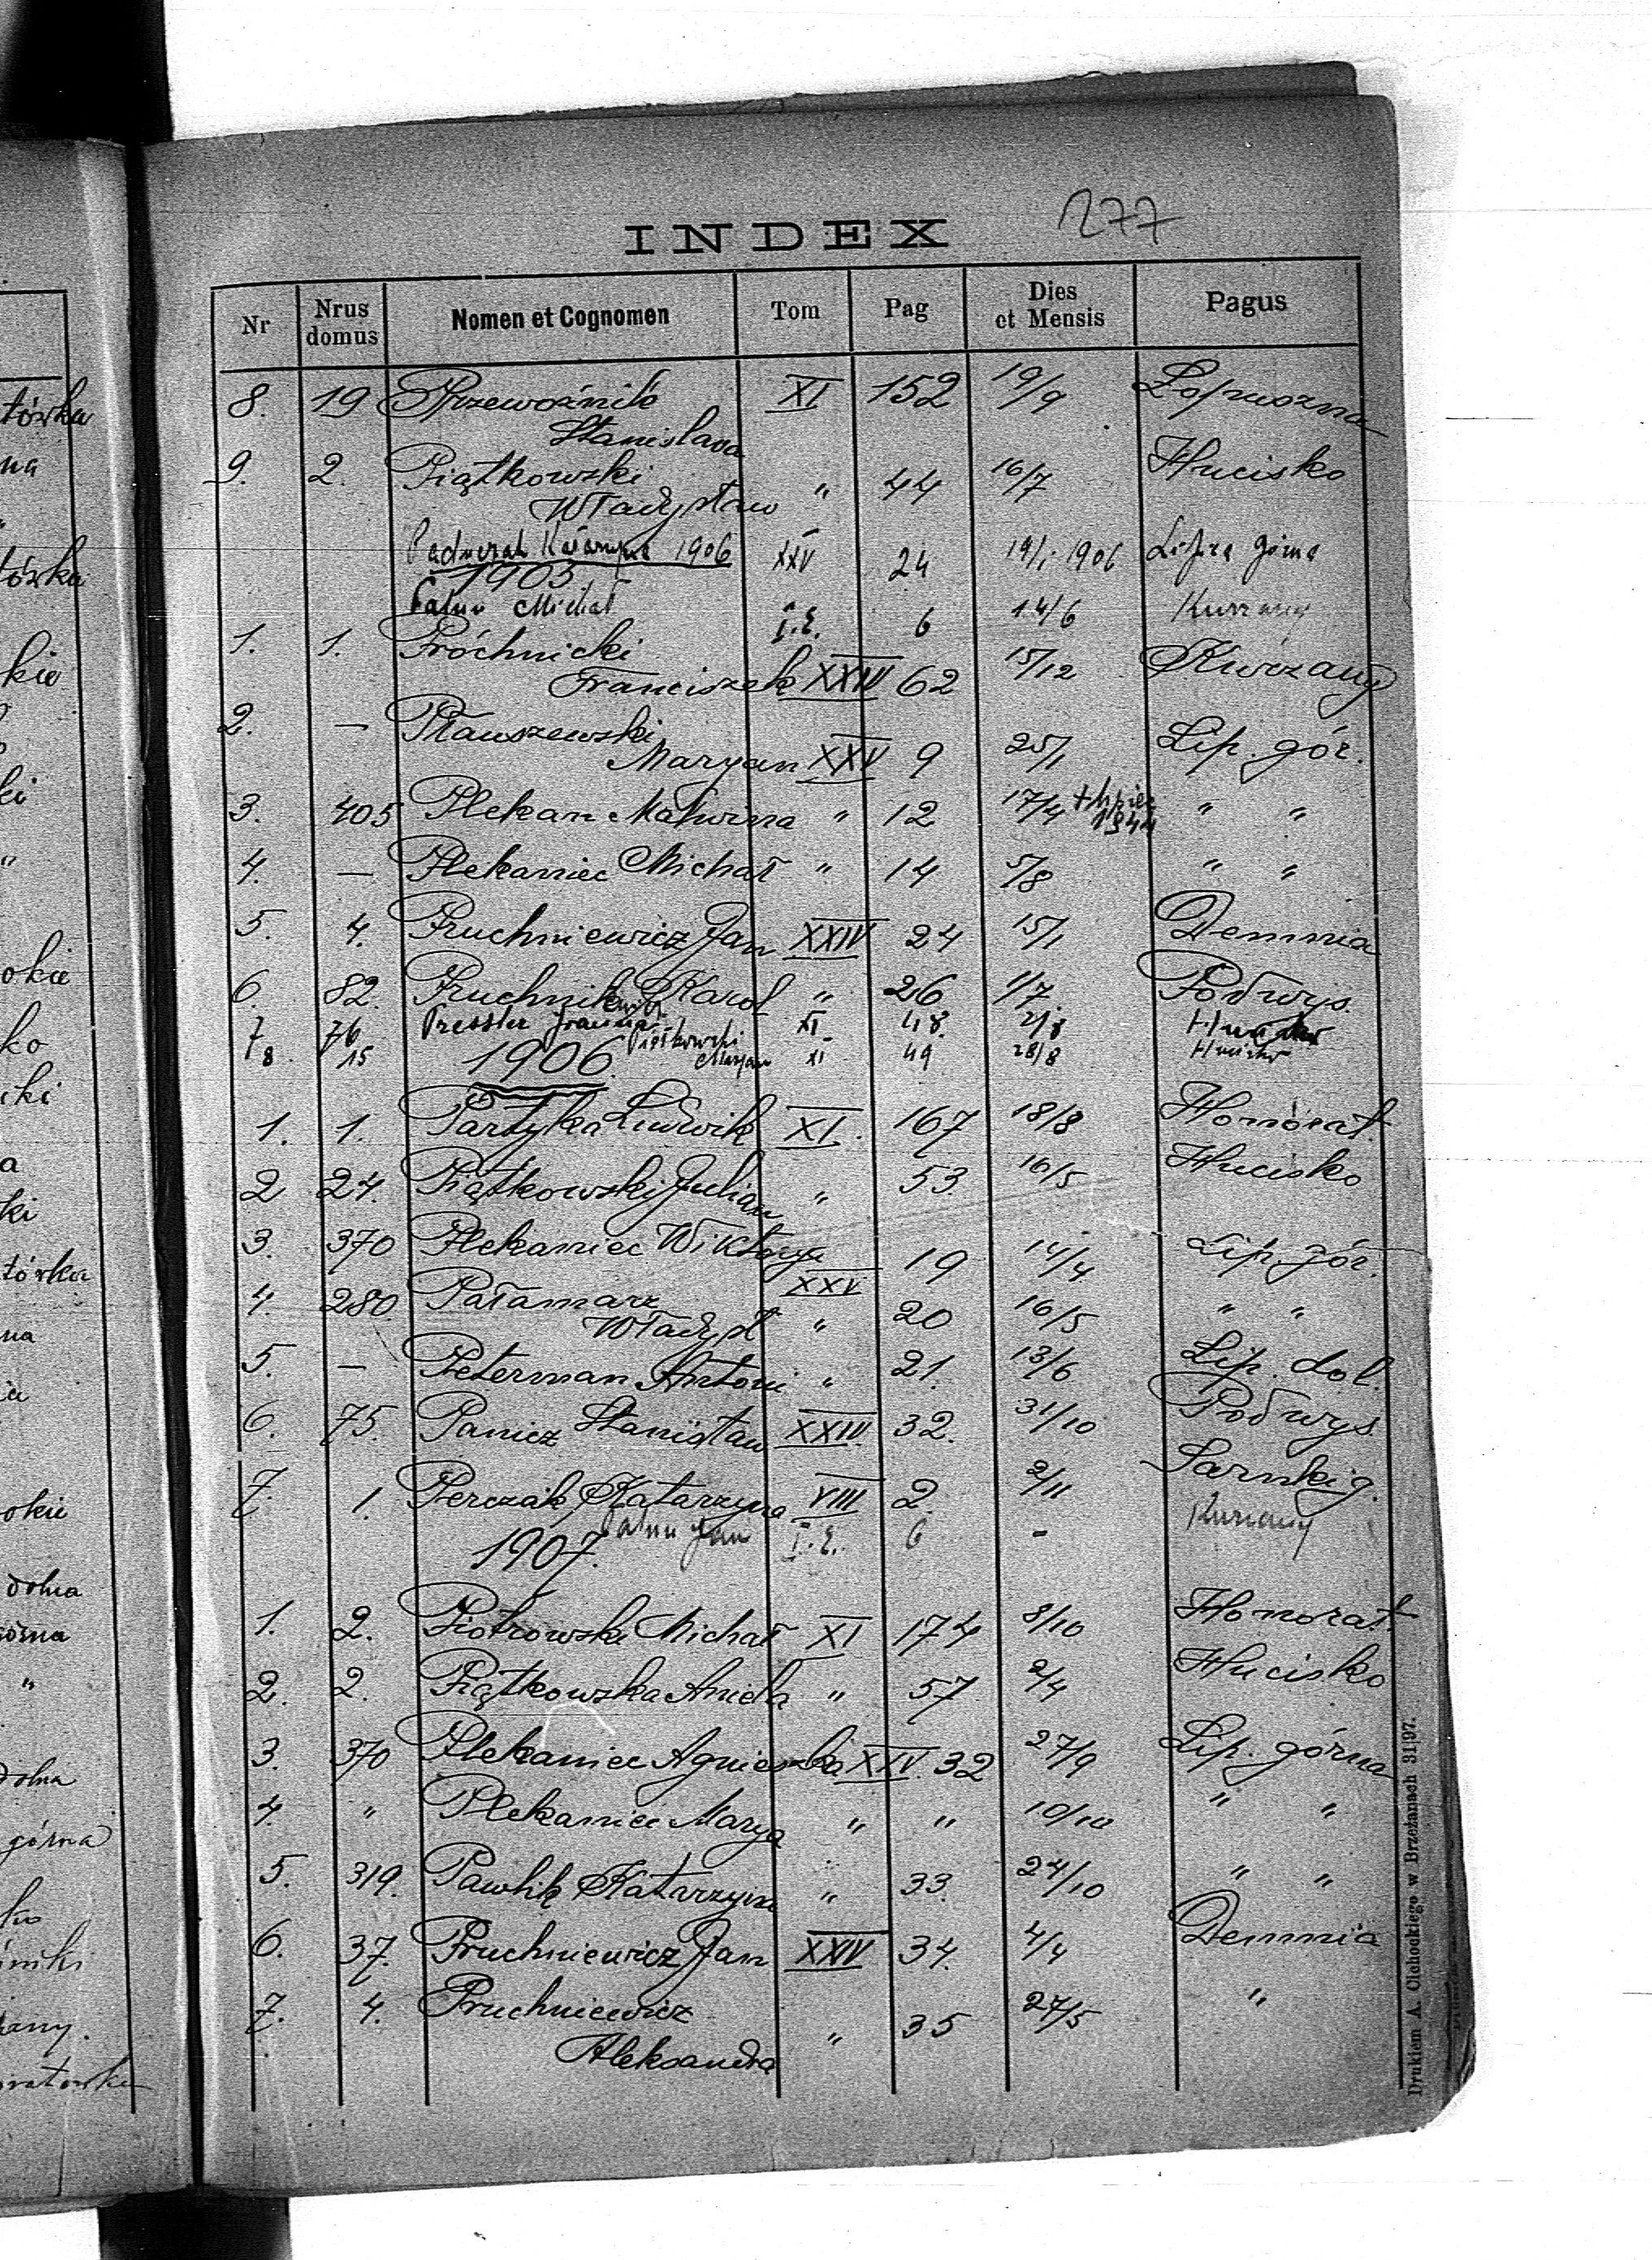 277
INDEX
Nr Nrus domus Nomen et Cognomen Tom Pag Dies et Mensis Pagus
8. 19 Przewoźnik XI 152 19/9 Łopuszna
Stanisława
9. 2. Piątkowski " 44 16/7 Hucisko
Władysław
Katarzyna 1906 XXV 24 19/1 1906 Lipica górna
1905
Michał I.E. 6 14/6 Kurzany
1. 1. Próchnicki 15/12 Kurzany
Franciszek XXIV 62
2. — Płauszewski
Maryan XXV 9 25/1 Lip. gór.
3. 405 Plekan Malwina " 12 17/4 " "
1944
4. — Plekaniec Michał " 14 5/8 " "
5. 4. Pruchniewicz Jan XXIV 24 15/1 Demnia
6. 82. Pruchnikewicz Karol " 26 1/7 Podwys.
7 76 Pressler Franciszka XI 48. 2/8
8. 15 Piątkowski Maryan XI 49 28/8 Hucisko
1906.
1. 1. Partyka Ludwik XI. 167 18/8 Honorat.
2 24. Piątkowski Julian " 53. 16/5 Hucisko
3. 370 Plekaniec Wiktorya XXV 19 14/4 Lip. gór.
4. 280. Pałamarz
Władysł " 20 16/5 " "
5. — Peterman Antoni " 21. 13/6 Lip. dol.
6. 75. Panicz Stanisław XXIV. 32. 31/10 Podwys.
7. 1. Perczak Katarzyna VIII 2. 2/11 Sarnki g.
Jan I.E. 6 - Kurzany
1907.
1. 2. Piotrowski Michał XI 174 8/10 Honorat.
2. 2. Piątkowska Aniela " 57 2/4 Hucisko
3. 370 Plekaniec Agnieszka XIV. 32 27/9 Lip. górna
4. " Plekaniec Marya " " 10/10 " "
5. 319. Pawlik Katarzyna " 33. 24/10 " "
6. 37. Pruchniewicz Jan XXIV 34. 4/4 Demnia
7. 4. Pruchniewicz " 35 27/5 "
Aleksandra
Drukiem A. Cichockiego w Brzeżanach 31|97.
tówka
na
"
kie
ki
"
okie
ko
iki
a
ki
tówka
na
ia
okie
dolna
górna
"
dolna
górna